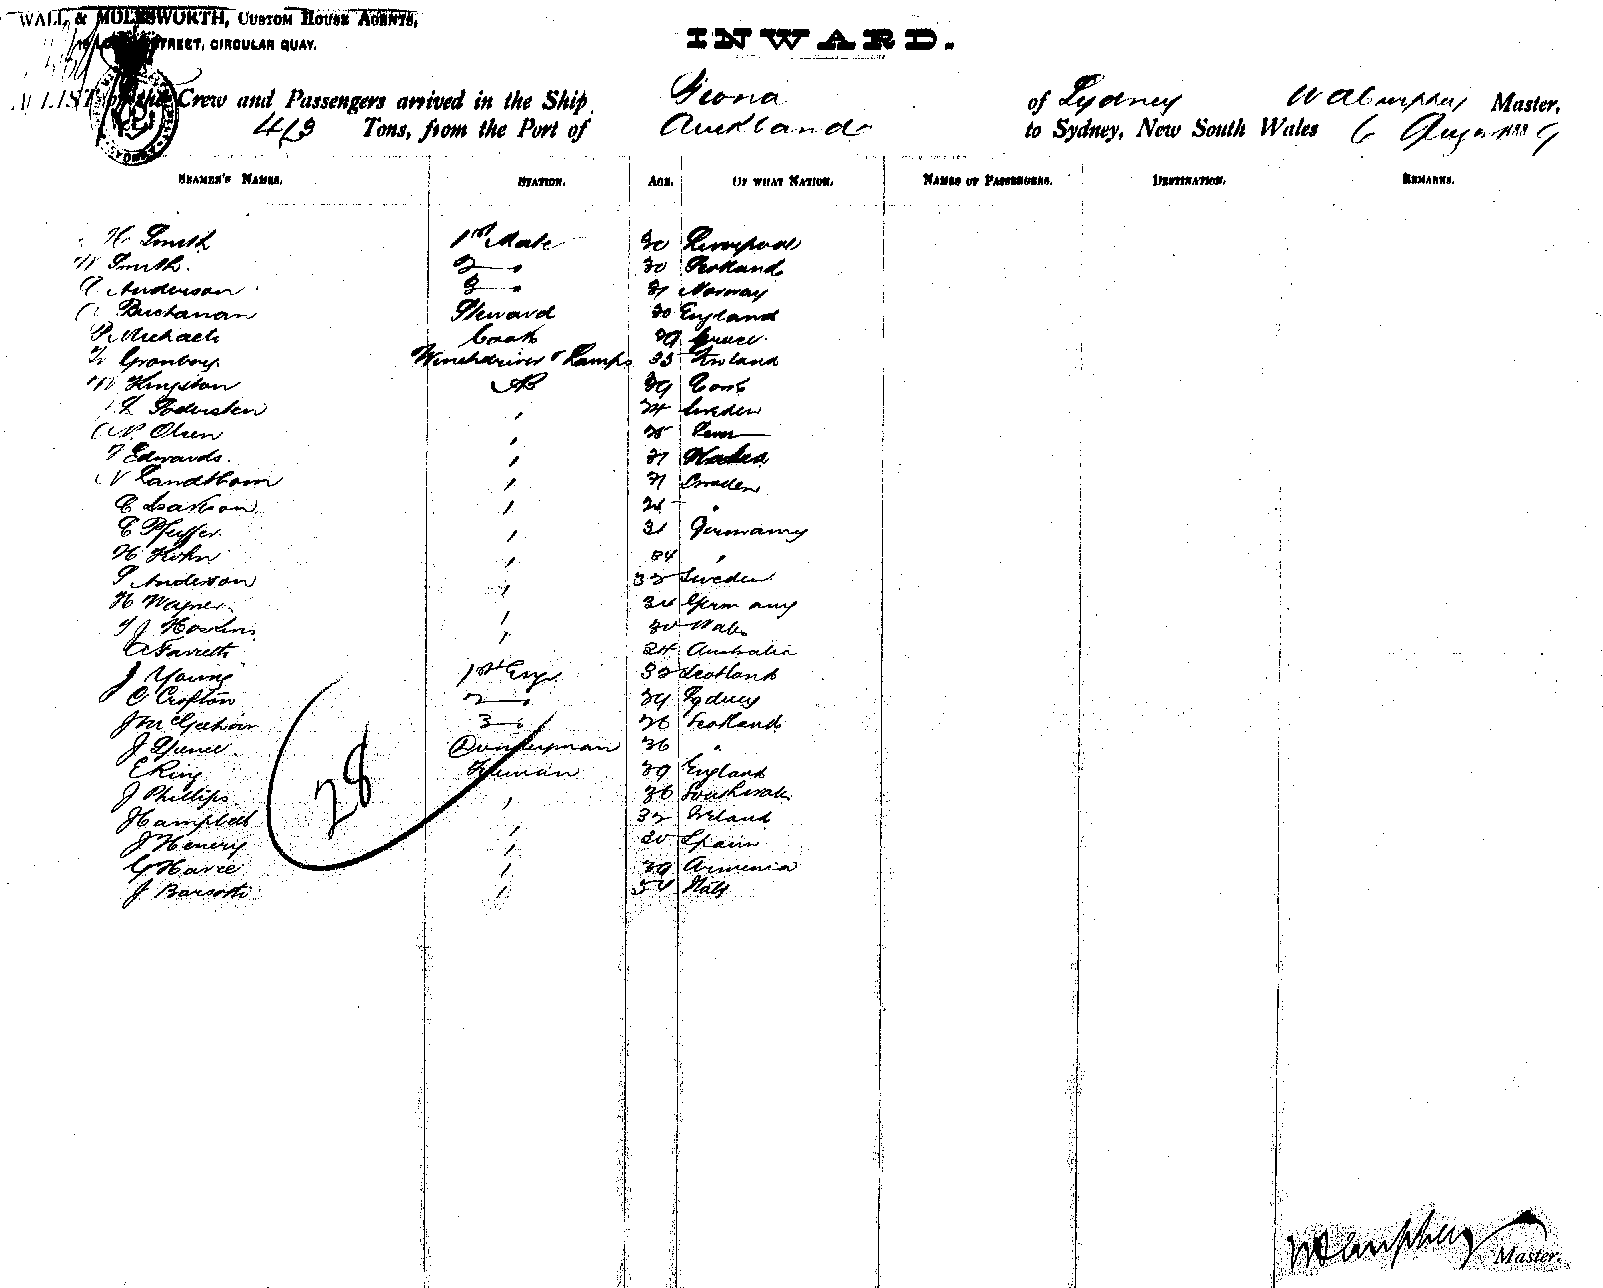 WALL & MOLESWORTH, CUSTOM HOUSE AGENTS,
STREET, CIRCULAR QUAY.
INWARD.
A LIST of the Crew and Passengers arrived in the Ship Fiona of Sydney Master,
Tons, from the Port of Auckland to Sydney, New South Wales 6 August 1889
SEAMEN'S NAMES. STATION. AGE. OF WHAT NATION. NAMES OF PASSENGERS. DESTINATION. REMARKS.
H Smith 1st Mate 30 Liverpool
W Smith 2 " 30 Scotland
Anderson 3 " Norway
Buchanan Steward 30 England
P. Michaels Cook 29 Greece
Granberg Winchdriver & Lamps 35
W Kingston AB 29 Cork
L Sodersten , 24 Sweden
Olsen ,
Edwards , Wales
Landstrom , Sweden
C Isakson , "
C Pfeiffer , 31 Germany
H Kohn , 34 "
P Anderson , 32 Sweden
H Wagner , Germany
J Howlins , 30 Wales
A 24 Australia
J Young 1st Eng 32 Scotland
C Crofton 2 " 29 Sydney
J McGeehan 3 " 26 Scotland
J Spence Donkeyman 36 "
E King Fireman 39 England
J Phillips , 36
J Campbell , 32 Ireland
J Henery , 30 Spain
G Harice , 39 Armenia
J Barsotti , 54 Italy
28
Master.